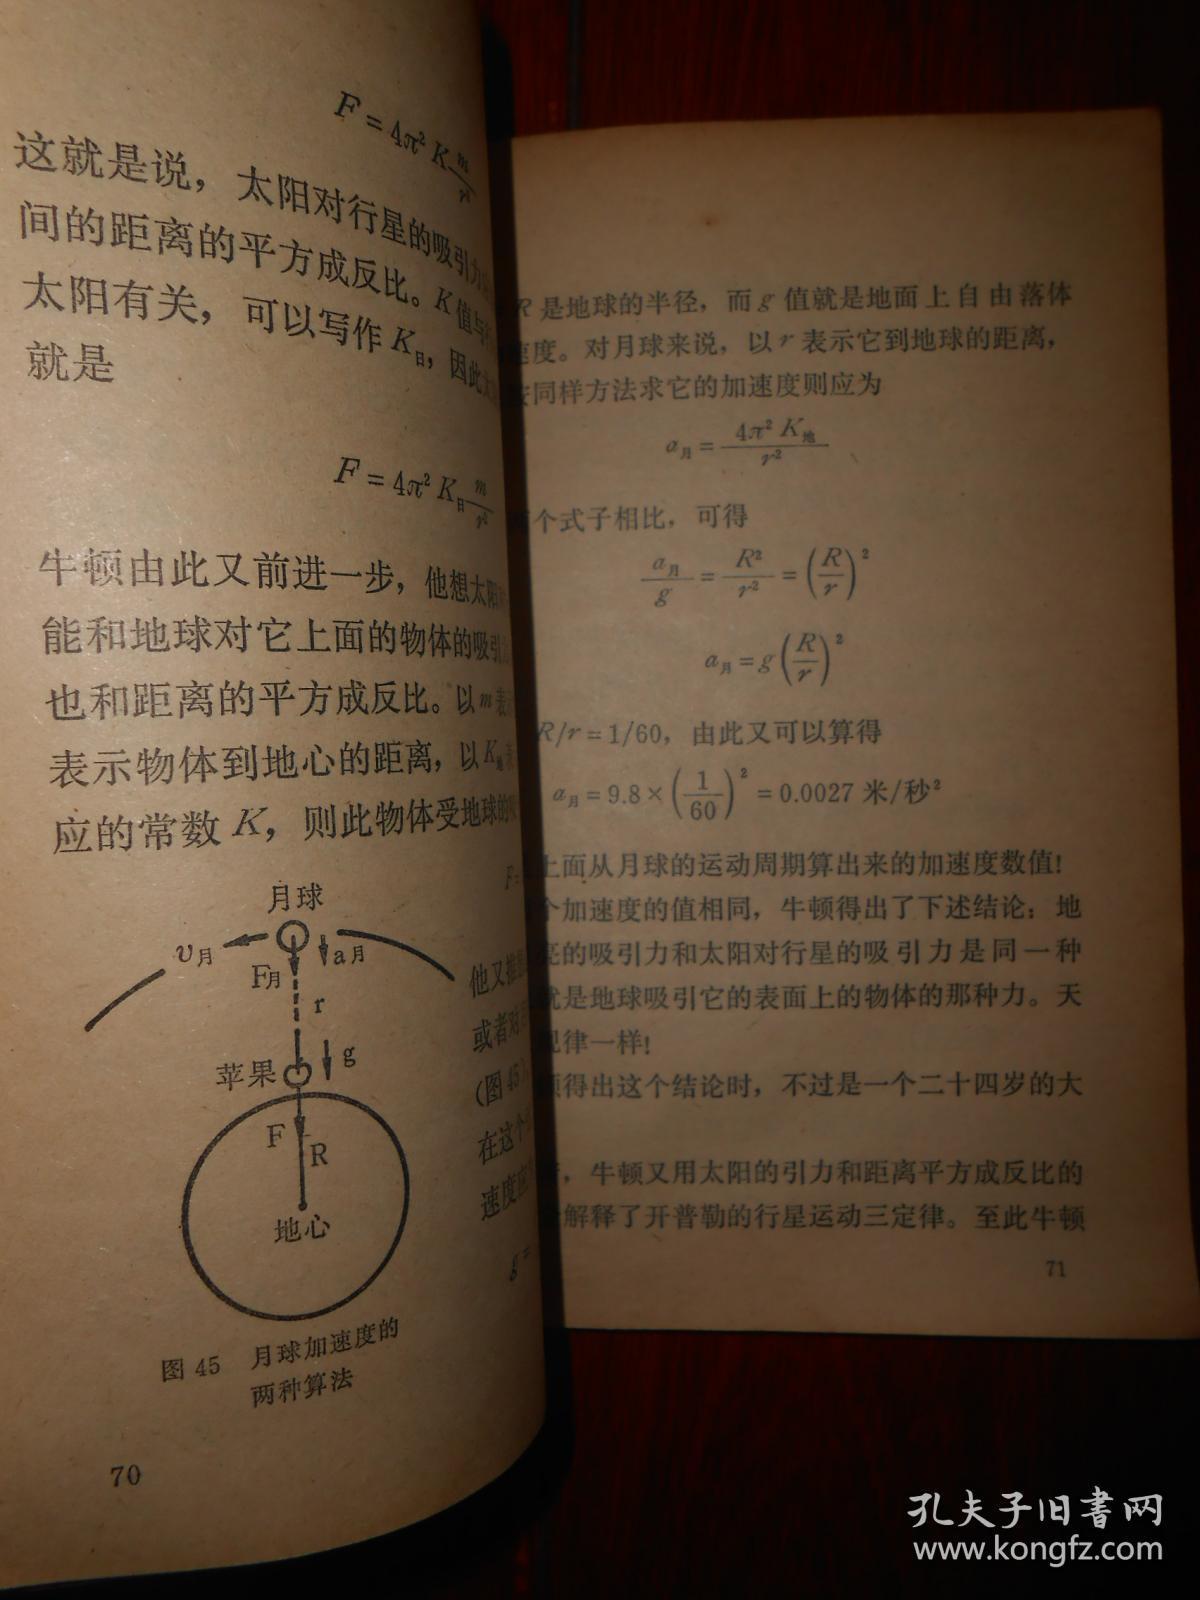 F = 4π² K m/r²
这就是说，太阳对行星的吸引力
间的距离的平方成反比。K值与
太阳有关，可以写作K日，因此太
就是
F = 4π² K日 m/r²
牛顿由此又前进一步，他想太阳
能和地球对它上面的物体的吸引
也和距离的平方成反比。以m表
表示物体到地心的距离，以K地
应的常数K，则此物体受地球的
F=
他又推
或者对
(图45)
在这个
速度应
g=
月球
υ月
F月
a月
r
苹果
g
F
R
地心
图 45 月球加速度的
两种算法
70
R是地球的半径，而g值就是地面上自由落体
速度。对月球来说，以r表示它到地球的距离，
同样方法求它的加速度则应为
a月 = 4π² K地/r²
个式子相比，可得
a月/g = R²/r² = (R/r)²
a月 = g(R/r)²
R/r = 1/60，由此又可以算得
a月 = 9.8 × (1/60)² = 0.0027 米/秒²
上面从月球的运动周期算出来的加速度数值!
个加速度的值相同，牛顿得出了下述结论：地
亮的吸引力和太阳对行星的吸引力是同一种
就是地球吸引它的表面上的物体的那种力。天
规律一样!
顿得出这个结论时，不过是一个二十四岁的大
，牛顿又用太阳的引力和距离平方成反比的
解释了开普勒的行星运动三定律。至此牛顿
71
孔夫子旧书网
www.kongfz.com